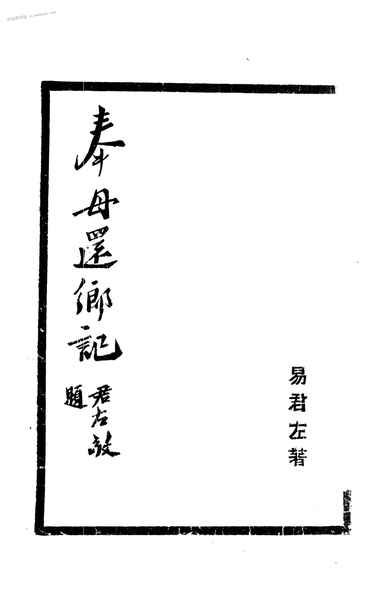 易君左著
奉母還鄉記
君左敬
題